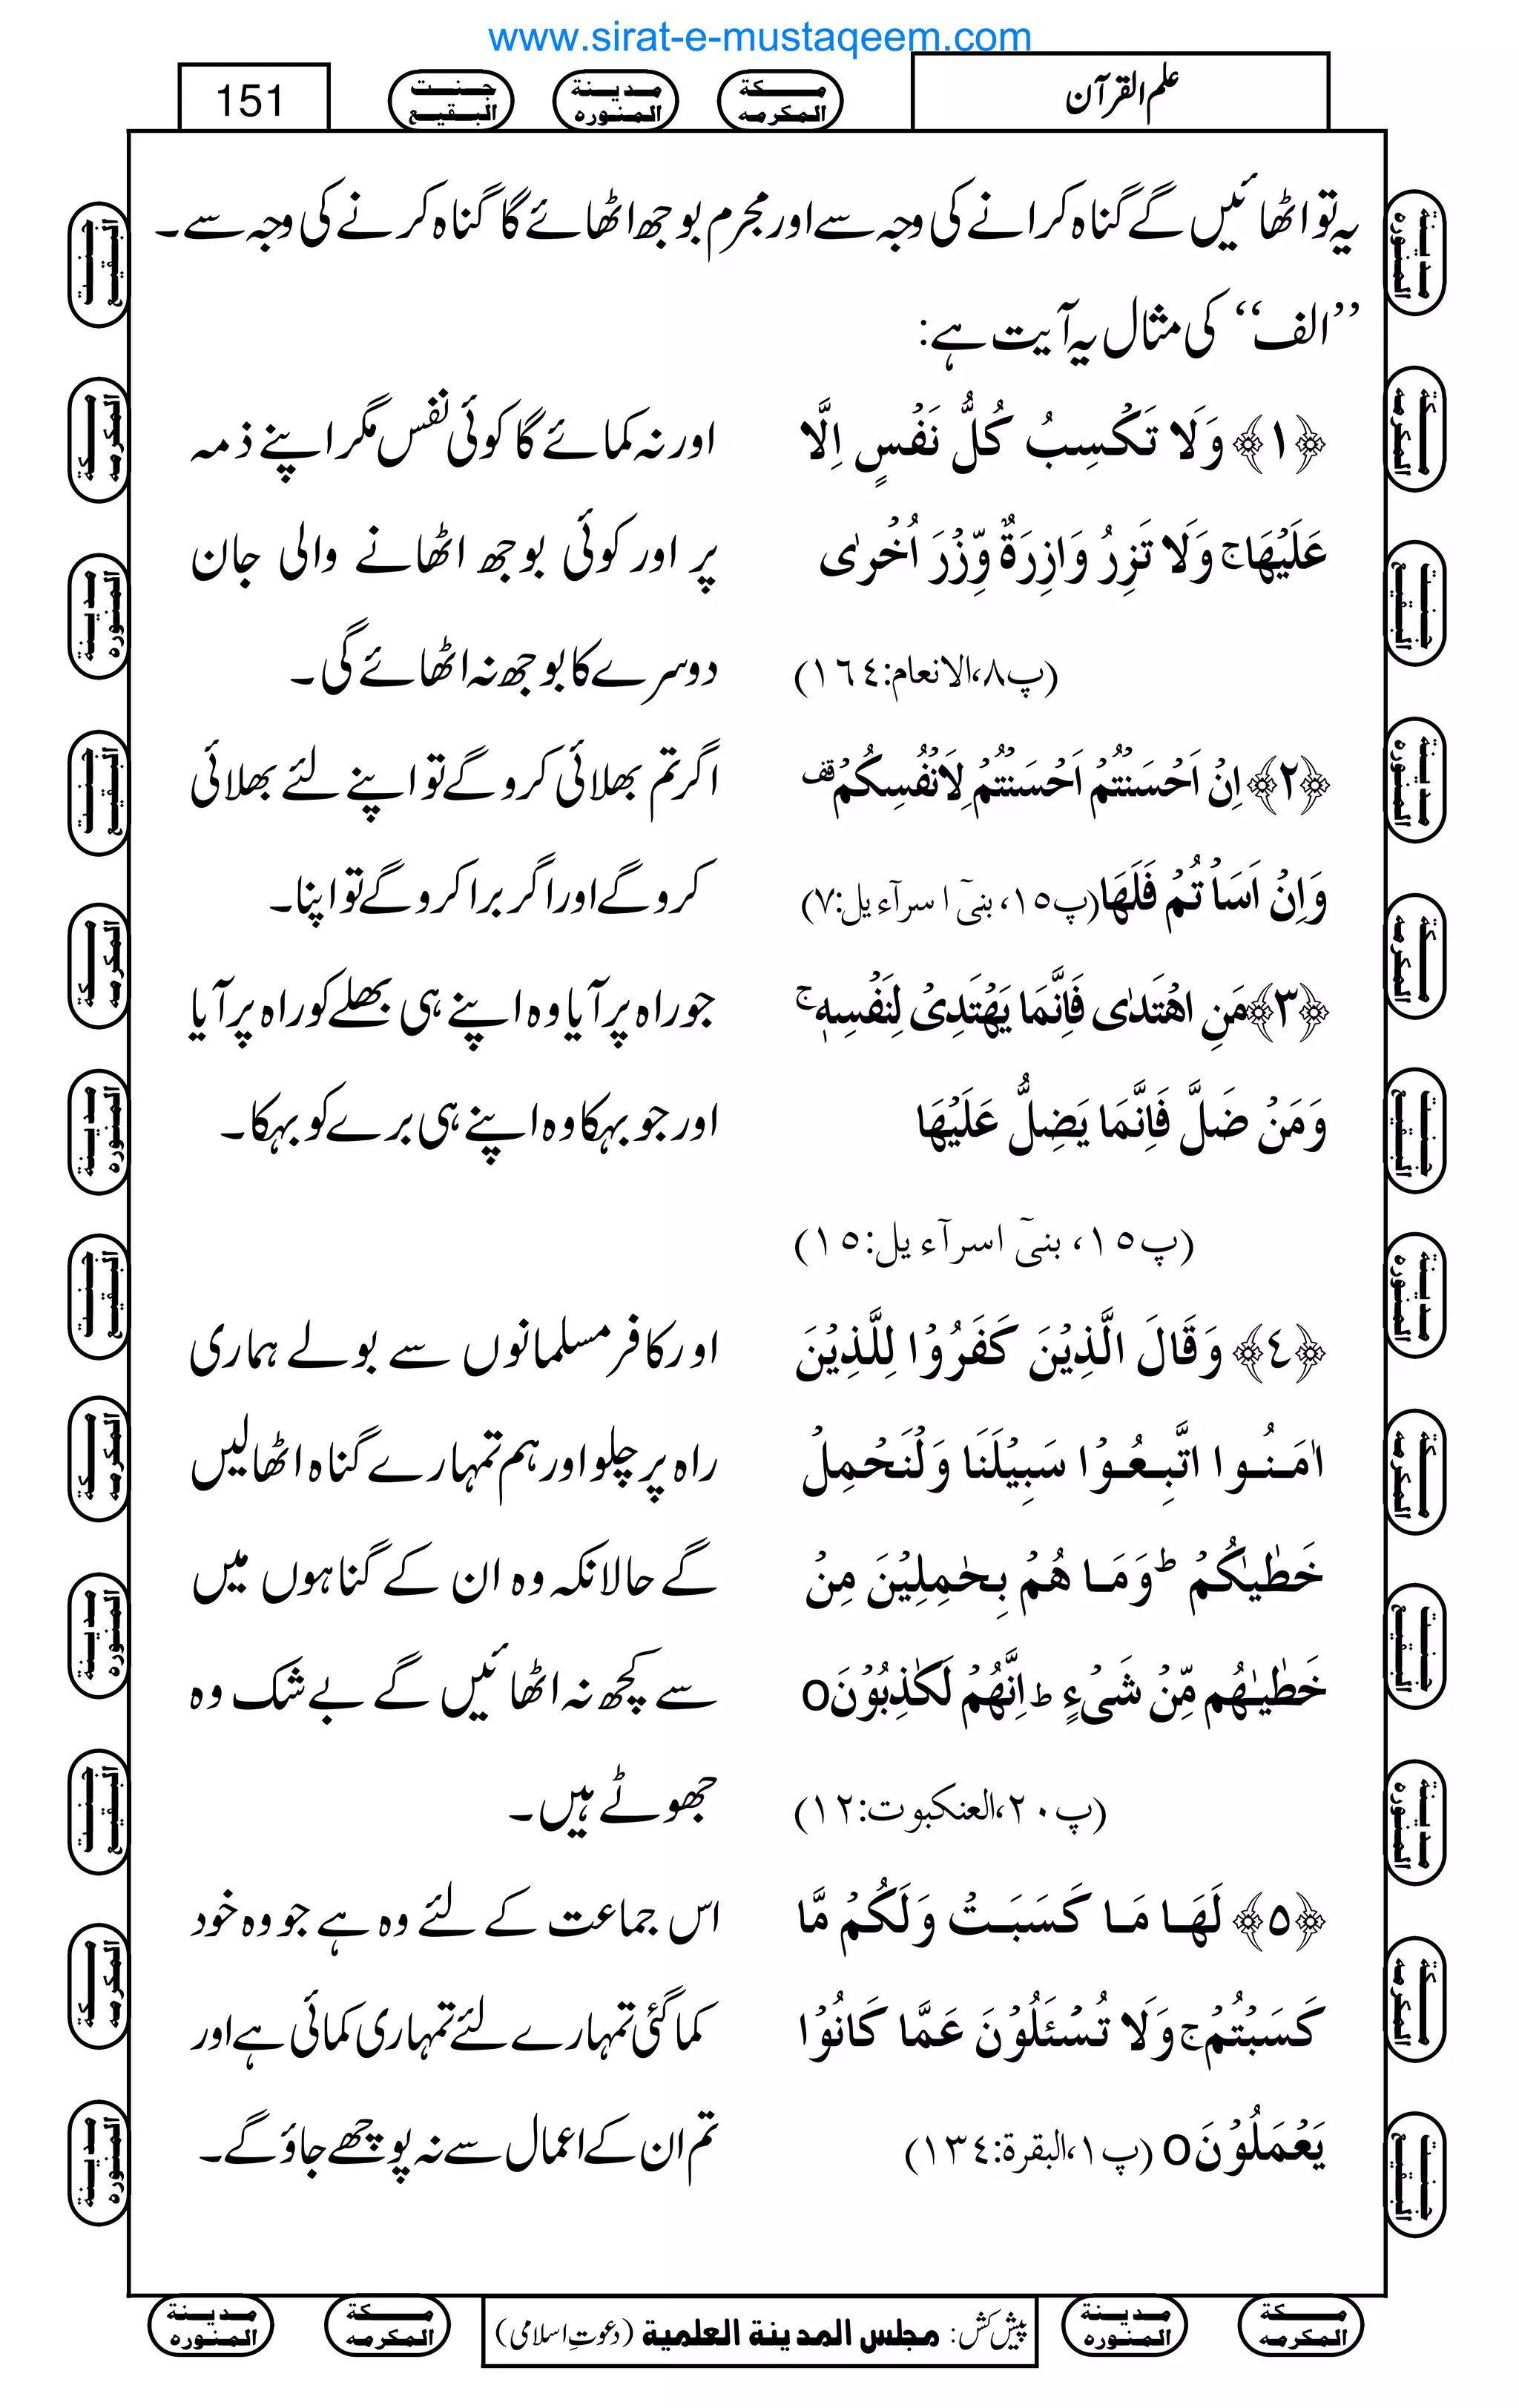 www.sirat-e-mustaqeem.com
علم القرآن
مكة المكرمه
مدينة المنوره
جنت البقيع
151
یہ تو اٹھائیں گے گناہ کرانے کی وجہ سے اور مجرم بوجھ اٹھائے گا گناہ کرنے کی وجہ سے۔
’’الف‘‘ کی مثال یہ آیت ہے:
﴿۱﴾ وَلَا تَكْسِبُ كُلُّ نَفْسٍ اِلَّا
عَلَيْهَا ج وَلَا تَزِرُ وَازِرَةٌ وِّزْرَ اُخْرٰى
(پ۸،الانعام:۱٦٤)
اور نہ کمائے گا کوئی نفس مگر اپنے ذمہ
پر اور کوئی بوجھ اٹھانے والی جان
دوسرے کا بوجھ نہ اٹھائے گی۔
﴿۲﴾ اِنْ اَحْسَنْتُمْ اَحْسَنْتُمْ لِاَنْفُسِكُمْ قف
وَاِنْ اَسَاْ تُمْ فَلَهَا (پ۱۵، بنیٓ اسرآء یل:۷)
اگر تم بھلائی کرو گے تو اپنے لئے بھلائی
کرو گے اور اگر برا کرو گے تو اپنا۔
﴿۳﴾ مَنِ اهْتَدٰى فَاِنَّمَا يَهْتَدِىْ لِنَفْسِهٖ ج
وَمَنْ ضَلَّ فَاِنَّمَا يَضِلُّ عَلَيْهَا
(پ۱۵، بنیٓ اسرآء یل:۱۵)
جو راہ پر آیا وہ اپنے ہی بھلے کو راہ پر آیا
اور جو بہکا وہ اپنے ہی برے کو بہکا۔
﴿٤﴾ وَقَالَ الَّذِيْنَ كَفَرُوْا لِلَّذِيْنَ
اٰمَنُوا اتَّبِعُوْا سَبِيْلَنَا وَلْنَحْمِلْ
خَطٰيٰكُمْ ط وَمَا هُمْ بِحٰمِلِيْنَ مِنْ
خَطٰيٰهُم مِّنْ شَىْءٍ ط اِنَّهُمْ لَكٰذِبُوْنَ o
(پ۲۰،العنكبوت:۱۲)
اور کافر مسلمانوں سے بولے ہماری
راہ پر چلو اور ہم تمہارے گناہ اٹھالیں
گے حالانکہ وہ ان کے گناہوں میں
سے کچھ نہ اٹھائیں گے بے شک وہ
جھوٹے ہیں۔
﴿۵﴾ لَهَا مَا كَسَبَتْ وَلَكُمْ مَّا
كَسَبْتُمْ ج وَلَا تُسْئَلُوْنَ عَمَّا كَانُوْا
يَعْمَلُوْنَ o (پ۱،البقرة:۱۳٤)
اس جماعت کے لئے وہ ہے جو وہ خود
کما گئی تمہارے لئے تمہاری کمائی ہے اور
تم ان کے اعمال سے نہ پوچھے جاؤ گے۔
پیش کش: مجلس المدينة العلمية (دعوتِ اسلامی)